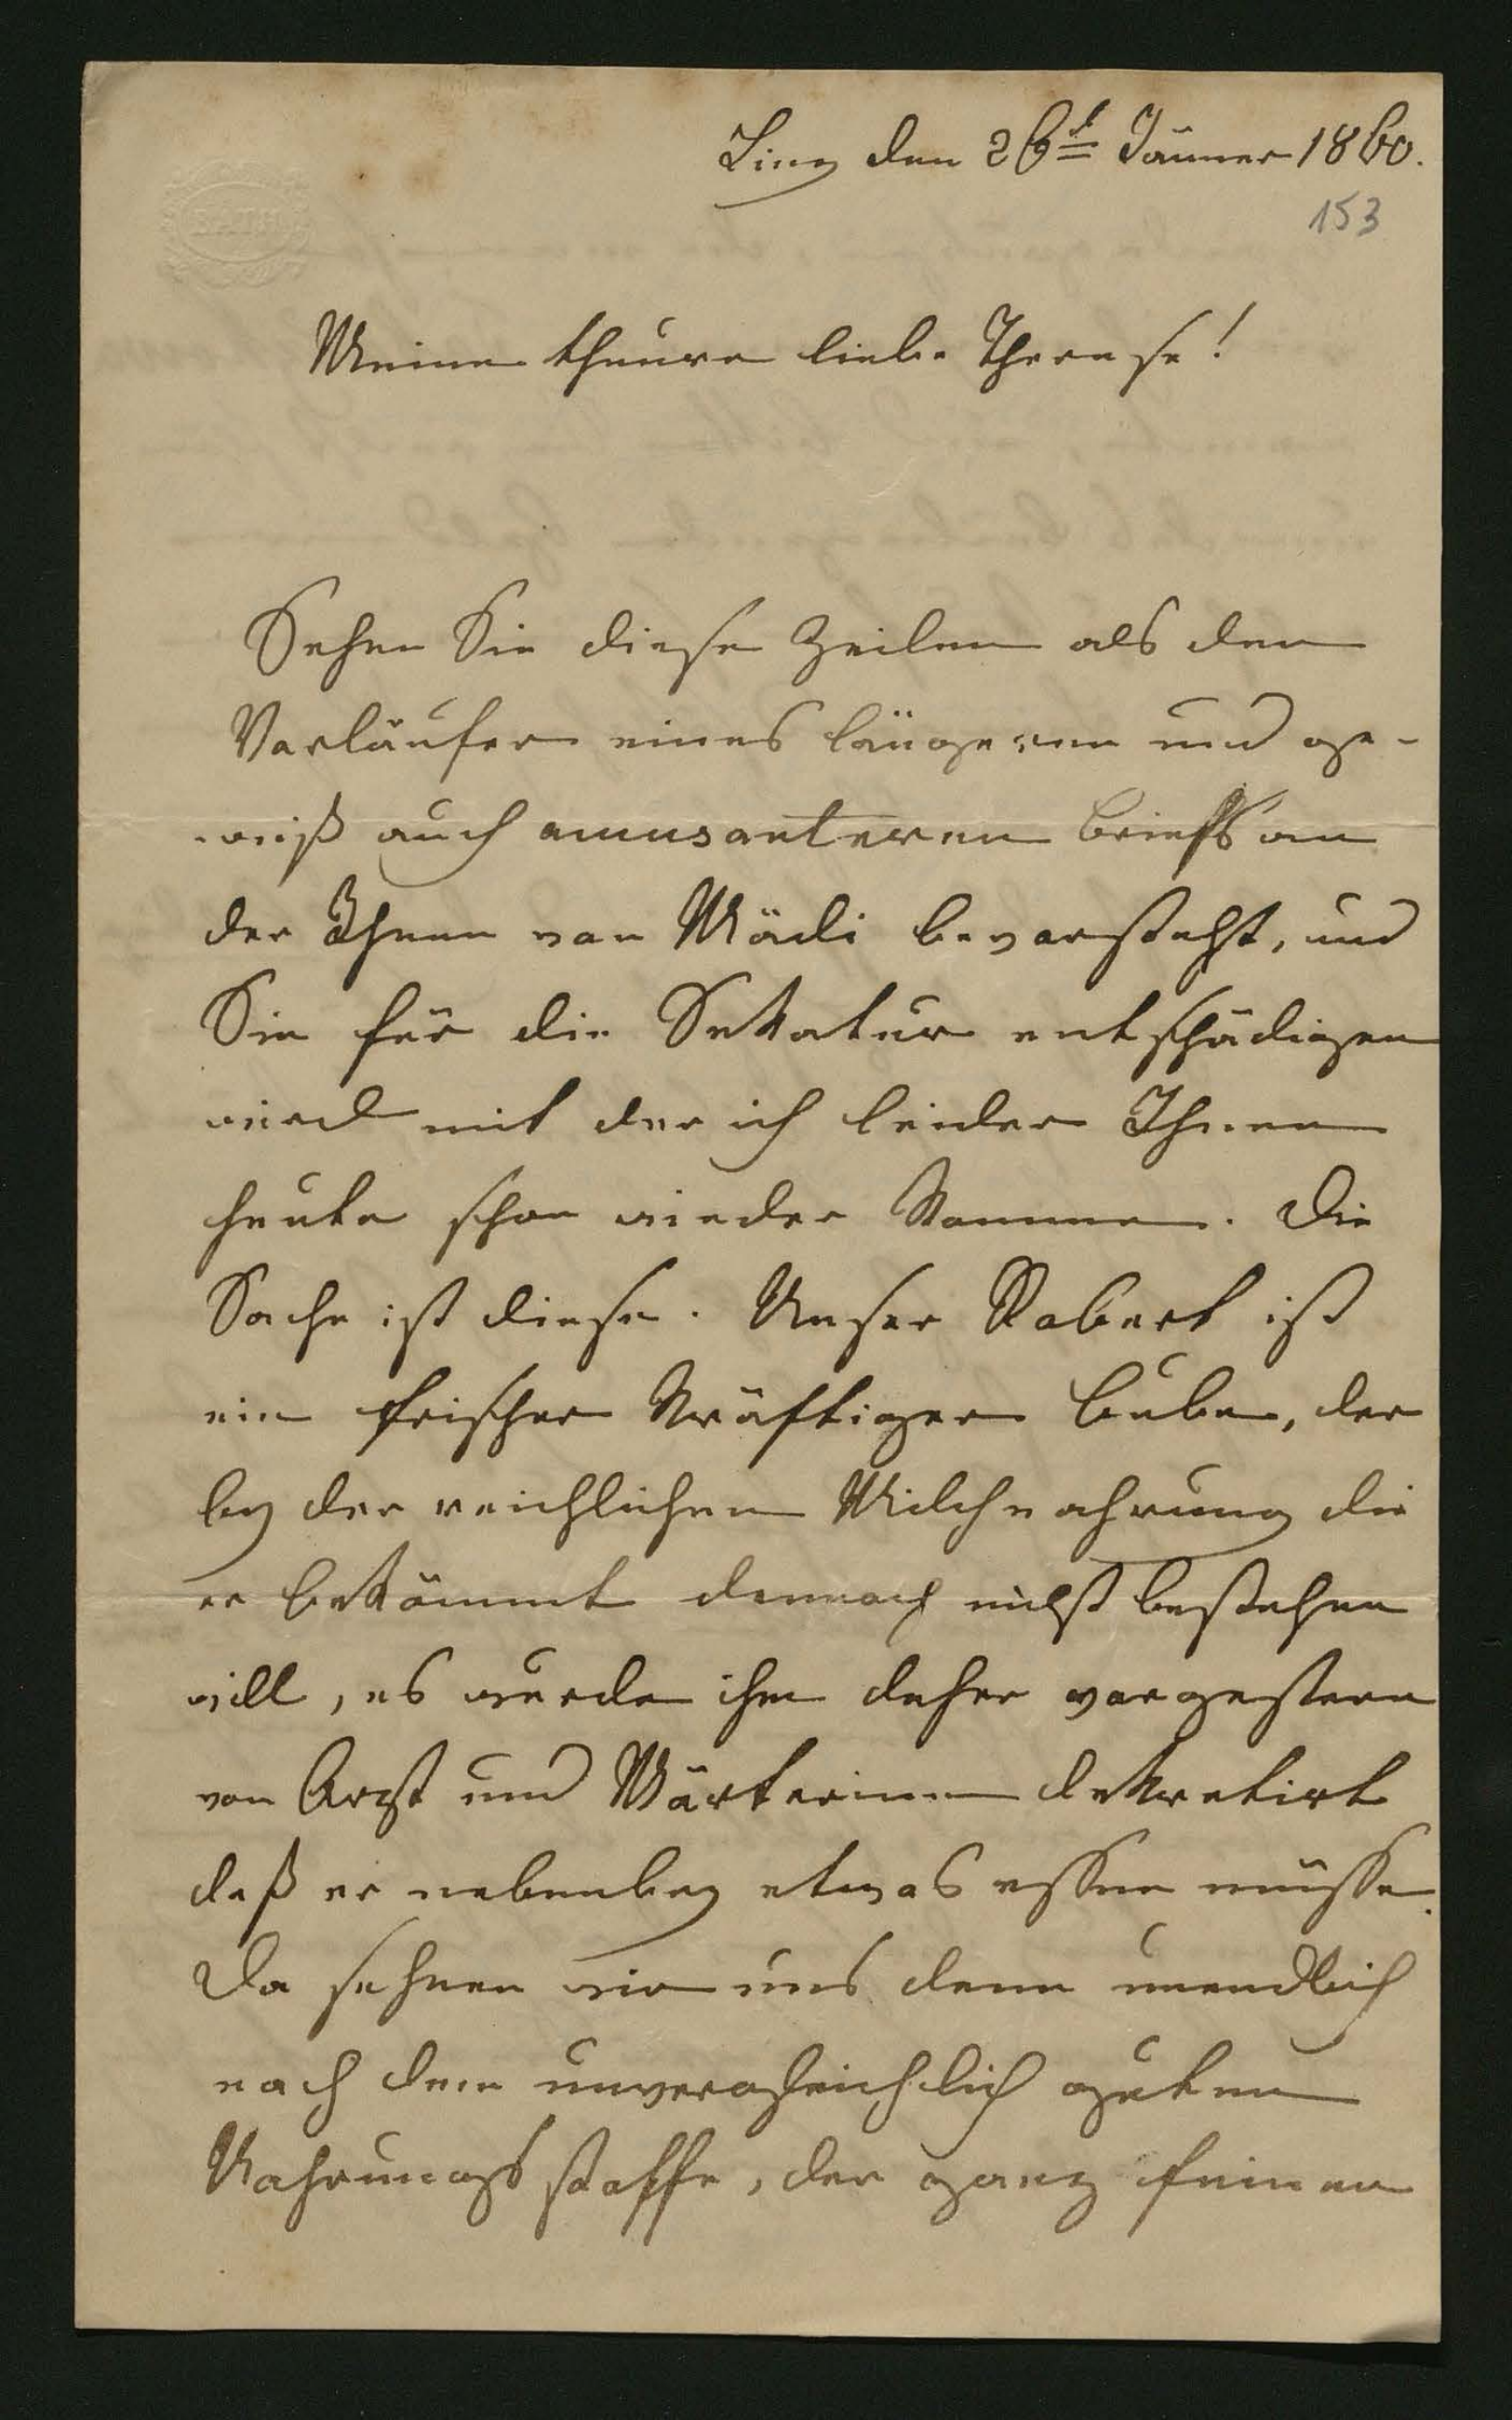 Linz den 26t Jänner 1860.
153
BATH
Meine theure liebe Therese!
Sehen Sie diese Zeilen als den
Vorläufer eines längeren und ge-
wiß auch amusanteren Briefs an
der Ihnen von Mädi bevorsteht, und
Sie für die Sekatur entschädigen
wird mit der ich leider Ihnen
heute schon wieder komme. Die
Sache ist diese. Unser Robert ist
ein frischer kräftiger Bube, der
bey der reichlichen Milchnahrung die
er bekömmt dennoch nicht bestehen
will, es wurde ihm daher vorgestern
von Arzt und Wärterinnen dekretirt
daß er nebenbey etwas essen müsse.
Da sehnen wir uns denn unendlich
nach dem unvergleichlich guten
Nahrungsstoffe, der ganz feinen